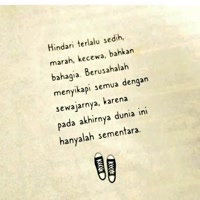 Hindari terlalu sedih,
marah, kecewa, bahkan
bahagia. Berusahalah
menyikapi semua dengan
sewajarnya, karena
pada akhirnya dunia ini
hanyalah sementara.